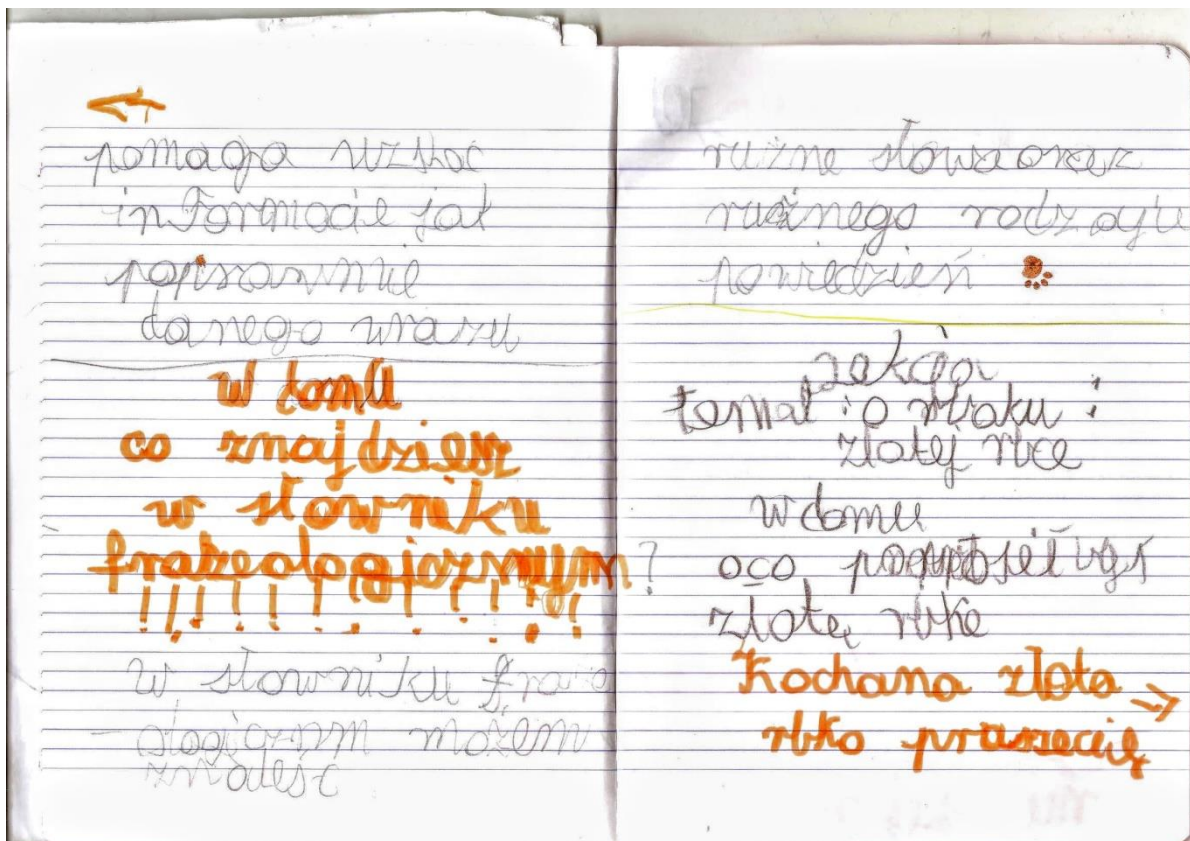 pomaga uzskac
inFormacie jak
poprawnie
danego wrazu
w domu
co znajdziesz
w słowniku
frazeologjcznym?
!!!!!!!!!!
w słowniku fraze
- ologicznym możem
znaleść
ružne słowa oraz
rużnego rodzaju
powiedzień
temat: o rbaku i
złotej rbce
w domu
oco
złotę rbke
Kochana złota
rbko praszecię